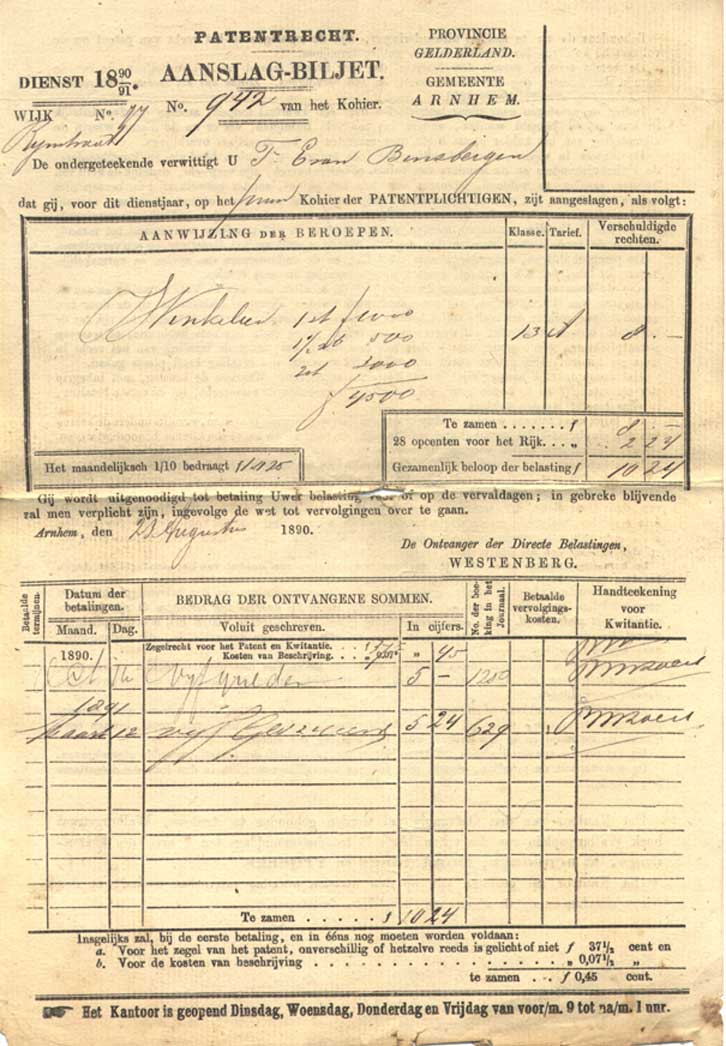 PATENTRECHT.
AANSLAG-BILJET.
DIENST 18 90/91.
PROVINCIE
GELDERLAND.
GEMEENTE
ARNHEM.
WIJK No.
No. 942 van het Kohier.
De ondergeteekende verwittigt U Bensbergen
dat gij, voor dit dienstjaar, op het Kohier der PATENTPLICHTIGEN, zijt aangeslagen, als volgt:
AANWIJZING DER BEROEPEN. Klasse. Tarief. Verschuldigde rechten.
Winkelier 1st f 1000
500
13 A 8 . –
2st 3000
f 4500
Te zamen . . . . . . . f 8 –
28 opcenten voor het Rijk. . „ 2 24
Het maandelijksch 1/10 bedraagt
Gezamenlijk beloop der belasting f 10 24
Gij wordt uitgenoodigd tot betaling Uwer belasting voor of op de vervaldagen; in gebreke blijvende
zal men verplicht zijn, ingevolge de wet tot vervolgingen over te gaan.
Arnhem, den 23 Augustus 1890.
De Ontvanger der Directe Belastingen,
WESTENBERG.
Betaalde termijnen. Datum der betalingen. Maand. Dag. BEDRAG DER ONTVANGENE SOMMEN. Voluit geschreven. In cijfers. No. der boeking in het Journaal. Betaalde vervolgingskosten. Handteekening voor Kwitantie.
Zegelrecht voor het Patent en Kwitantie. . . .
1890. Kosten van Beschrijving. . . . 0,07⁵ „ 45
Oct vijf gulden 5 –
1891
Maart 12 5 24 629
Te zamen . . . . . . f 10 24
Insgelijks zal, bij de eerste betaling, en in ééns nog moeten worden voldaan:
a. Voor het zegel van het patent, onverschillig of hetzelve reeds is gelicht of niet f 37½ cent en
b. Voor de kosten van beschrijving . . . . . . . . . . . . . . „ 0,07½ „
te zamen . . f 0,45 cent.
Het Kantoor is geopend Dinsdag, Woensdag, Donderdag en Vrijdag van voor/m. 9 tot na/m. 1 uur.